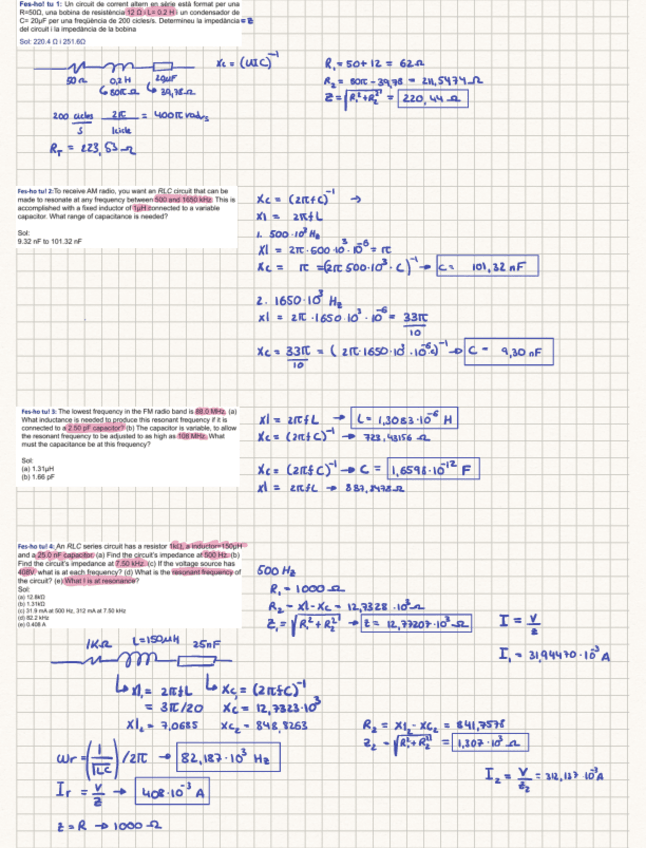 Fes-ho tu! 1: Un circuit de corrent altern en sèrie està format per una
R=50Ω, una bobina de resistència 12 Ω i L= 0.2 H i un condensador de
C= 20μF per una freqüència de 200 cicles/s. Determineu la impedància = z
del circuit i la impedància de la bobina
Sol: 220.4 Ω i 251.6Ω
Xc = (ωC)⁻¹
50Ω 0,2H 20μF
↳ 80π Ω ↳ 39,78Ω
200 cicles/s · 2π/1cicle = 400π rad/s
R_T = 223,53 Ω
R₁ = 50 + 12 = 62Ω
R₂ = 80π - 39,78 = 211,5474Ω
Z = √R₁² + R₂² = 220,44 Ω
Fes-ho tu! 2: To receive AM radio, you want an RLC circuit that can be
made to resonate at any frequency between 500 and 1650 kHz. This is
accomplished with a fixed inductor of 1μH connected to a variable
capacitor. What range of capacitance is needed?
Sol:
9.32 nF to 101.32 nF
Xc = (2πfC)⁻¹ →
Xl = 2πfL
1. 500·10³ Hz
Xl = 2π·500·10³·10⁻⁶ = π
Xc = π = (2π 500·10³ · C)⁻¹ → C = 101,32 nF
2. 1650·10³ Hz
Xl = 2π·1650·10³·10⁻⁶ = 33π/10
Xc = 33π/10 = (2π·1650·10³·10⁻⁶)⁻¹ → C = 9,30 nF
Fes-ho tu! 3: The lowest frequency in the FM radio band is 88.0 MHz. (a)
What inductance is needed to produce this resonant frequency if it is
connected to a 2.50 pF capacitor? (b) The capacitor is variable, to allow
the resonant frequency to be adjusted to as high as 108 MHz. What
must the capacitance be at this frequency?
Sol:
(a) 1.31μH
(b) 1.66 pF
Xl = 2πfL → L = 1,3083·10⁻⁶ H
Xc = (2πfC)⁻¹ → 723,43156 Ω
Xc = (2πfC)⁻¹ → C = 1,6598·10⁻¹² F
Xl = 2πfL →
Fes-ho tu! 4: An RLC series circuit has a resistor 1kΩ, a inductor=150μH
and a 25.0 nF capacitor. (a) Find the circuit's impedance at 500 Hz. (b)
Find the circuit's impedance at 7.50 kHz. (c) If the voltage source has
408V, what is at each frequency? (d) What is the resonant frequency of
the circuit? (e) What I is at resonance?
Sol:
(a) 12.8kΩ
(b) 1.31kΩ
(c) 31.9 mA at 500 Hz, 312 mA at 7.50 kHz
(d) 82.2 kHz
(e) 0.408 A
500 Hz
R₁ = 1000 Ω
R₂ = Xl - Xc = 12,7328·10³Ω
Z₁ = √R₁² + R₂² → Z = 12,77207·10³ Ω
I = V/Z
I₁ = 31,94470·10⁻³ A
1KΩ L=150μH 25nF
↳ Xl₁ = 2πfL ↳ Xc₁ = (2πfC)⁻¹
= 3π/20 Xc = 12,7323·10³
Xl₂ = 7,0685 Xc₂ = 848,8263
R₂ = Xl₂ - Xc₂ = 841,7578
Z₂ = √R₁² + R₂² = 1,307·10³ Ω
ωr = (1/√LC) /2π → 82,187·10³ Hz
I₂ = V/Z₂ = 312,137·10⁻³A
Ir = V/Z → 408·10⁻³ A
Z = R → 1000 Ω